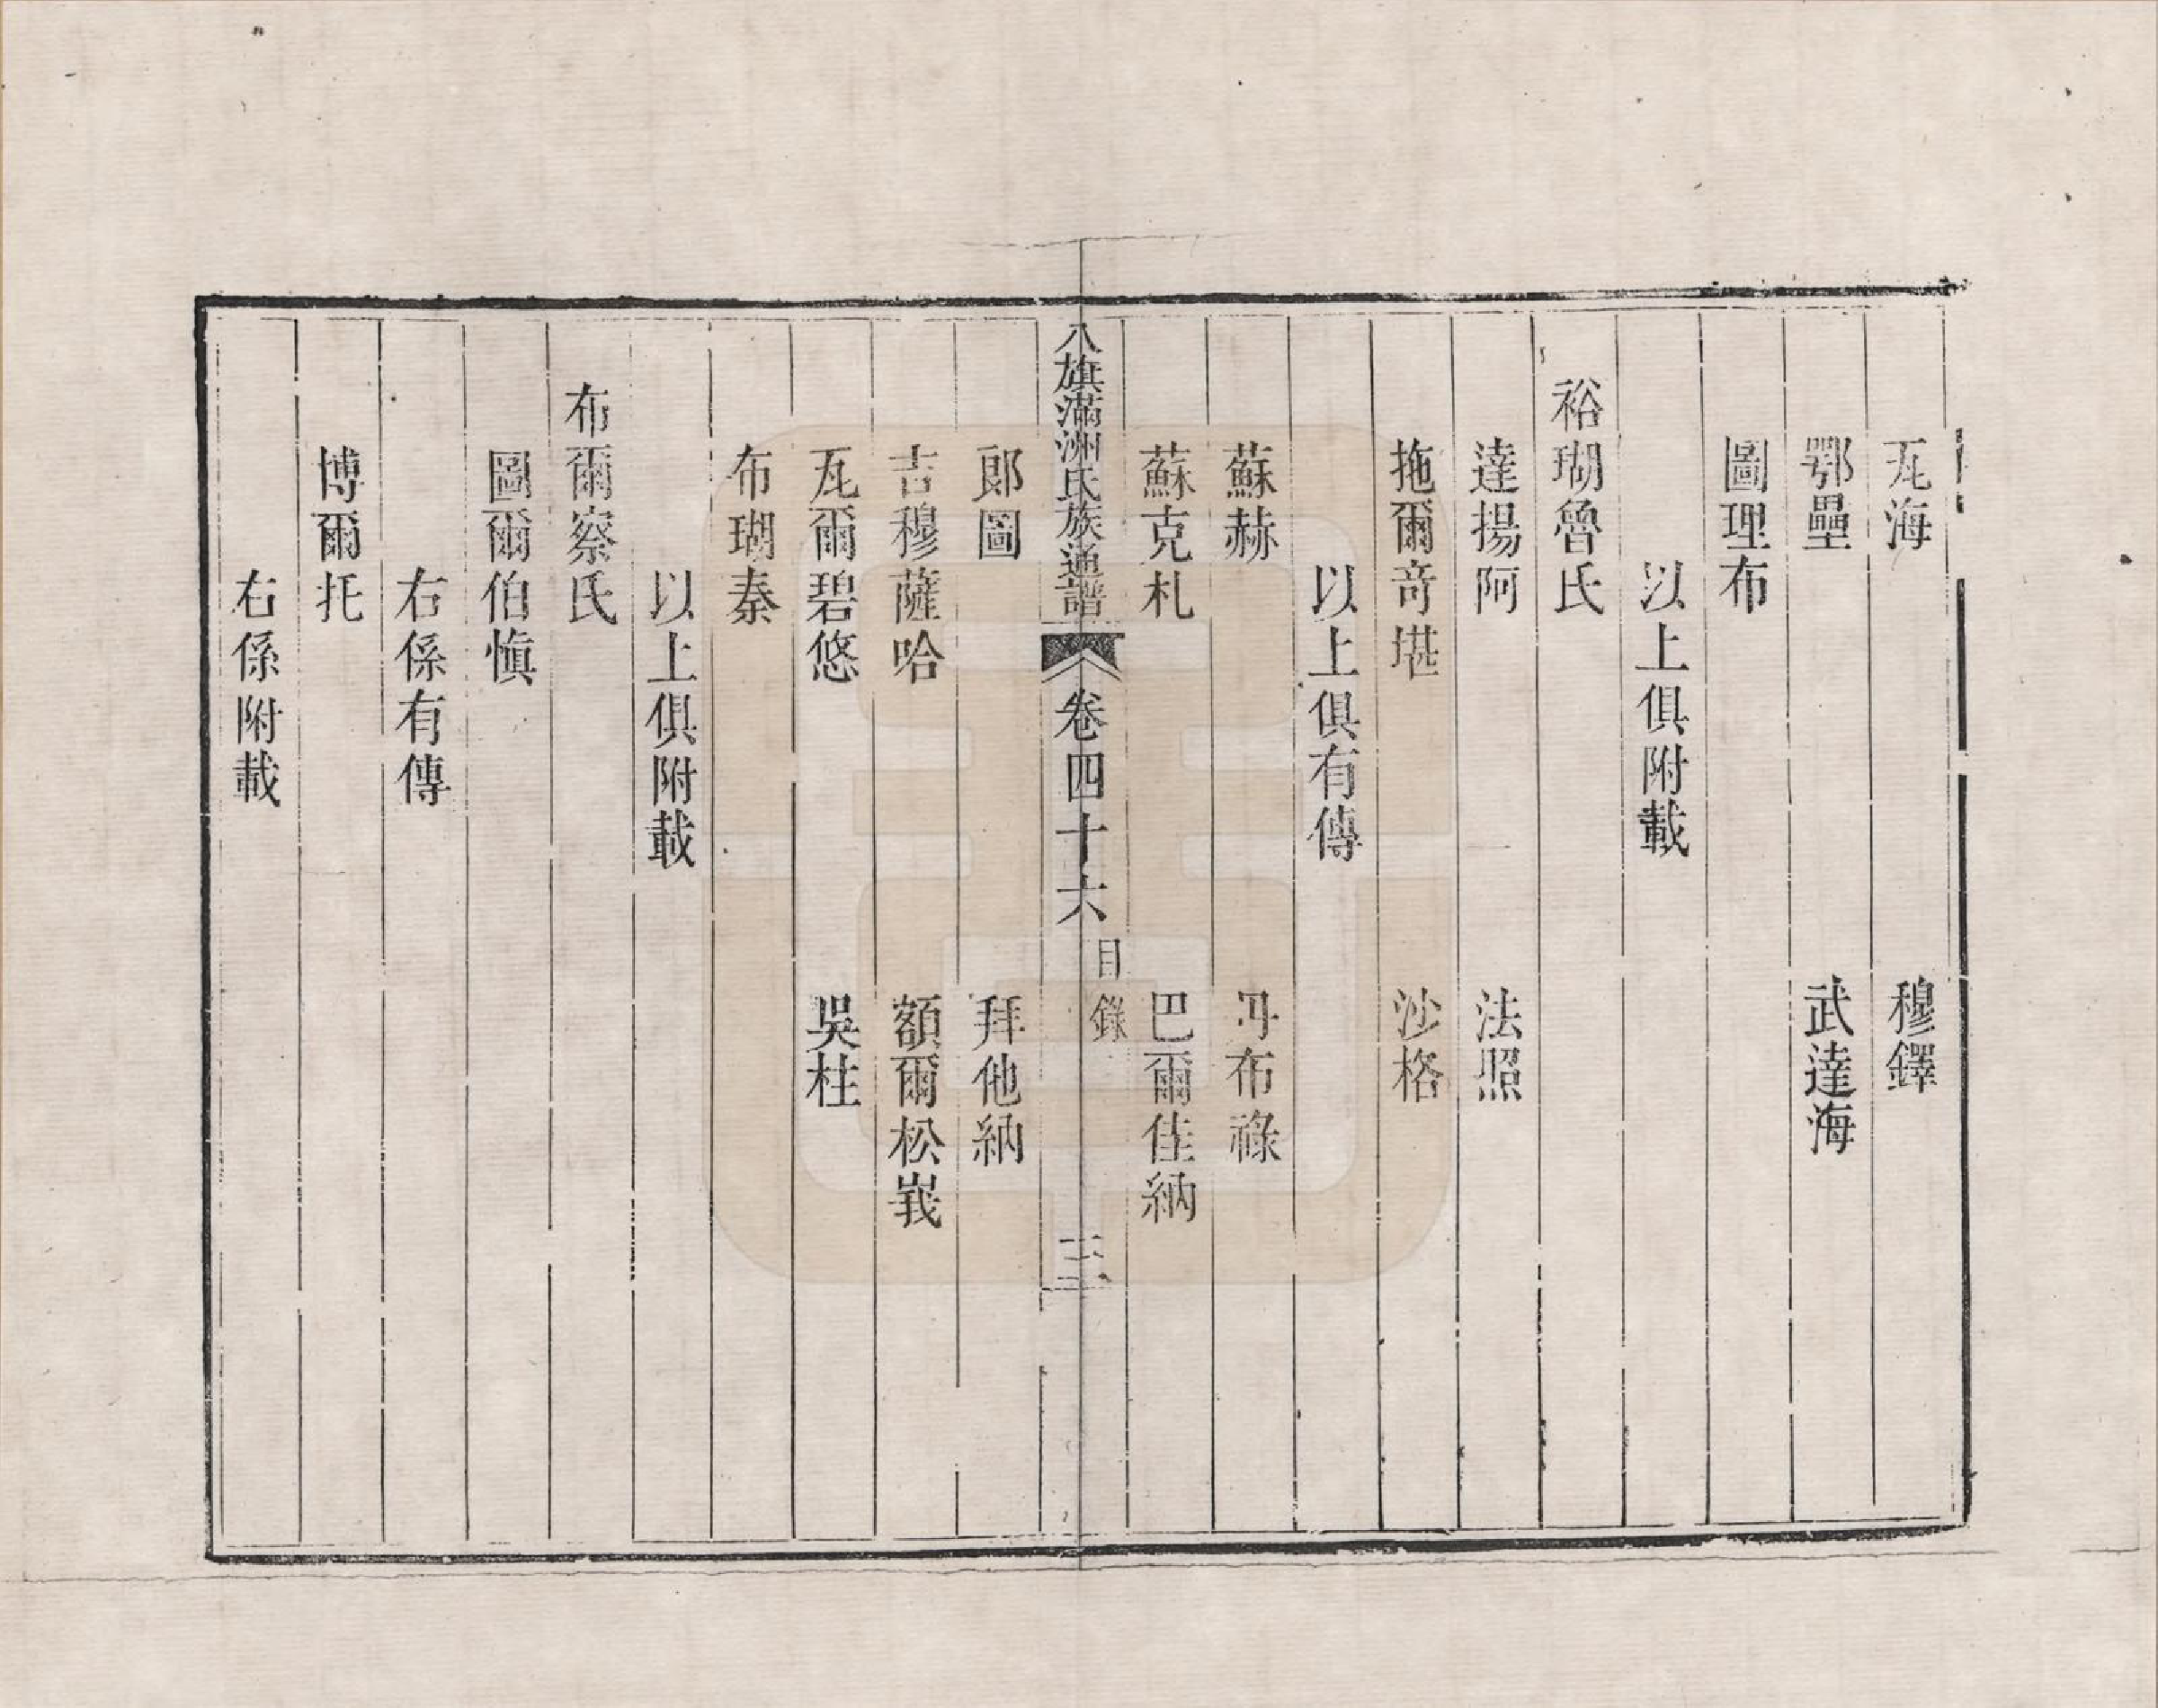 瓦海　穆鐸
鄂壘　武達海
圖理布
以上俱附載
裕瑚魯氏
達揚阿　法照
拖爾竒堪　沙格
以上俱有傳
蘇赫　丹布祿
蘇克札　巴爾佳納
八旗滿洲氏族通譜　卷四十六　目錄　三
郎圖　拜他納
吉穆薩哈　額爾松峩
瓦爾碧悠　吳柱
布瑚秦
以上俱附載
布爾察氏
圖爾伯慎
右係有傳
博爾托
右係附載